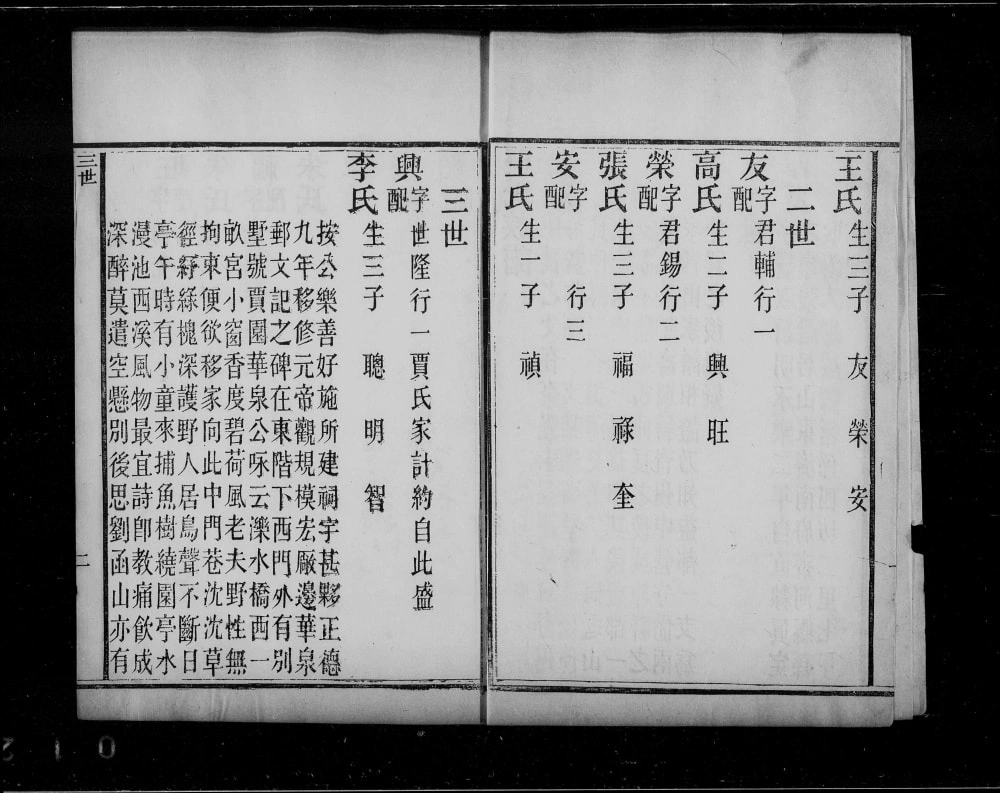 王氏生三子 友 榮 安
二世
友字君輔行一
配
高氏生二子 興 旺
榮字君錫行二
配
張氏生三子 福 祿 奎
安字 行三
配
王氏生一子 禎
三世
興字世隆行一賈氏家計約自此盛
配
李氏生三子 聰 明 智
按公樂善好施所建祠宇甚夥正德
九年移修元帝觀規模宏厰邊華泉
郵文記之碑在東階下西門外有別
墅號賈園華泉公咏云濼水橋西一
畝宮小窗香度碧荷風老夫野性無
拘束便欲移家向此中門巷沈沈草
經紆綠槐深護野人居鳥聲不斷日
亭午時有小童來捕魚樹繞園亭水
漫池西溪風物最宜詩卽教痛飲成
深醉莫遣空懸別後思劉函山亦有
三世
二
0 1 2